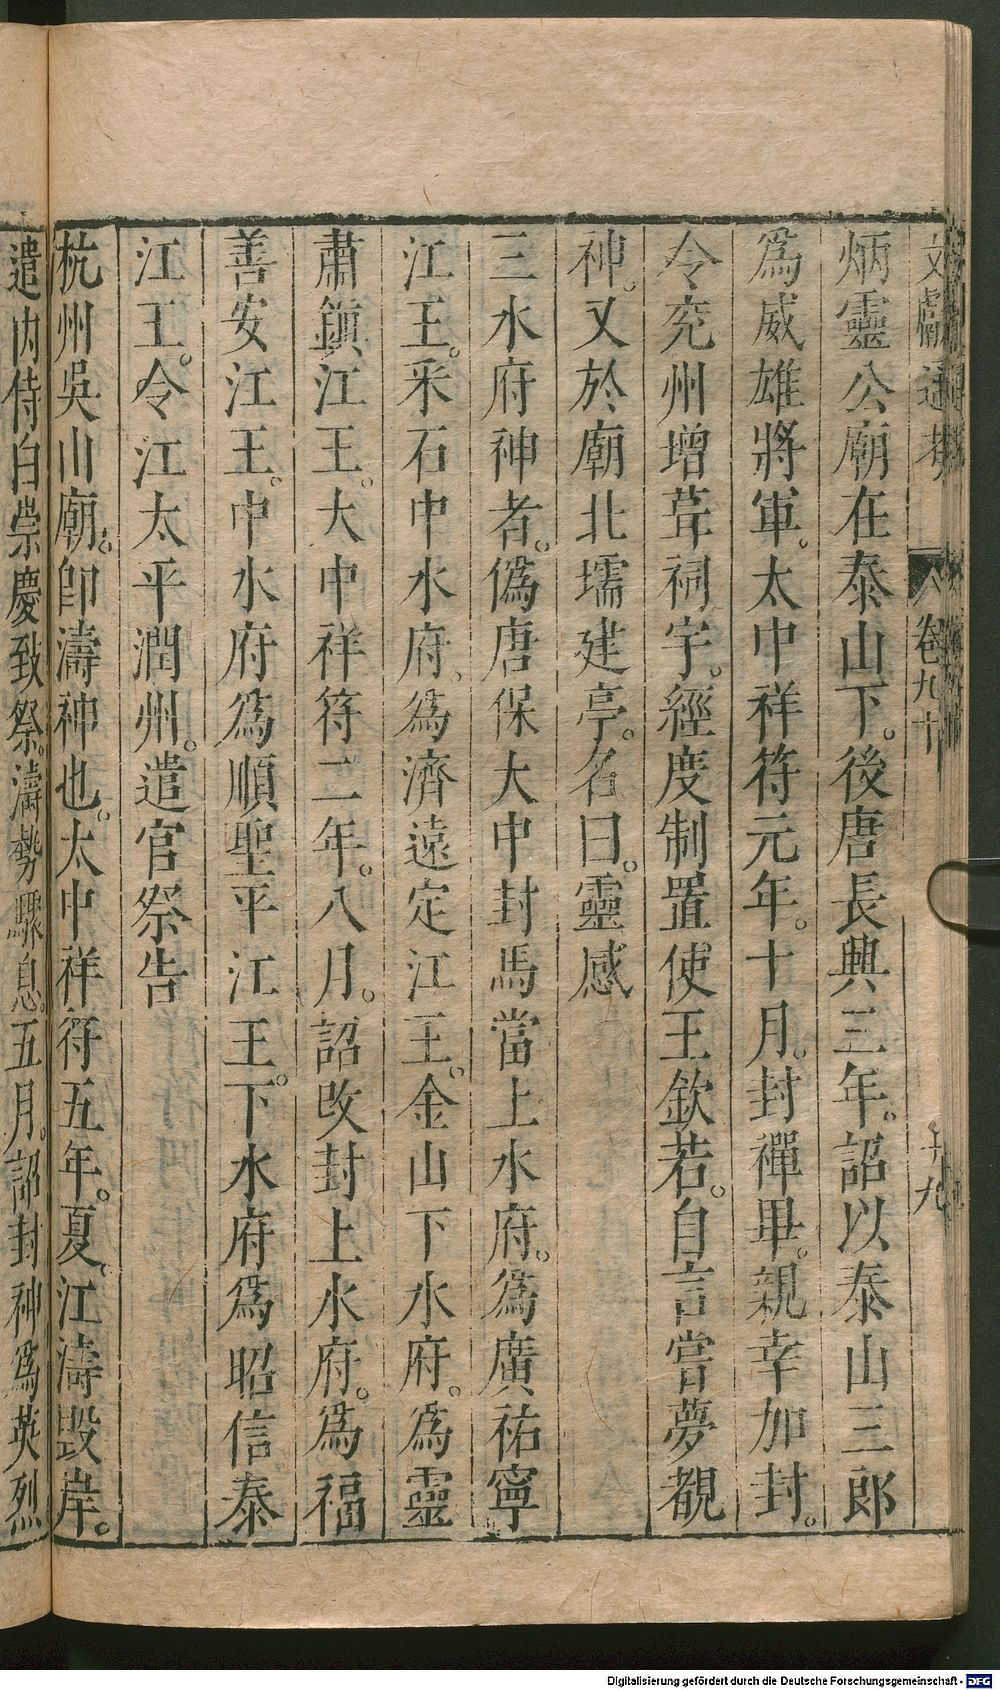 文獻通考 卷九十 十九
炳靈公廟在泰山下。後唐長興三年。詔以泰山三郎
爲威雄將軍。太中祥符元年。十月。封禪畢。親幸加封。
令兗州增葺祠宇。經度制置使王欽若。自言嘗夢覩
神。又於廟北壖建亭。名曰。靈感
三水府神者。僞唐保大中封馬當上水府。爲廣祐寧
江王。采石中水府、爲濟遠定江王。金山下水府。爲靈
肅鎭江王。大中祥符二年。八月。詔改封上水府。爲福
善安江王。中水府爲順聖平江王。下水府爲昭信泰
江王。令江太平潤州。遣官祭告
杭州吳山廟。卽濤神也。太中祥符五年。夏。江濤毀岸。
遣內侍白崇慶致祭。濤勢驟息。五月。詔封神爲英烈
Digitalisierung gefördert durch die Deutsche Forschungsgemeinschaft - DFG